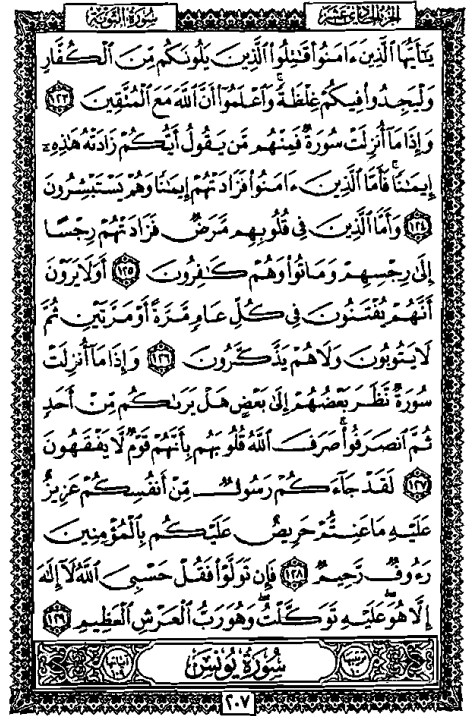 سُورَةُ التَّوْبَةِ الجُزْءُ الحَادِي عَشَر
يَـٰٓأَيُّهَا ٱلَّذِينَ ءَامَنُوا۟ قَـٰتِلُوا۟ ٱلَّذِينَ يَلُونَكُم مِّنَ ٱلْكُفَّارِ
وَلْيَجِدُوا۟ فِيكُمْ غِلْظَةً ۚ وَٱعْلَمُوٓا۟ أَنَّ ٱللَّهَ مَعَ ٱلْمُتَّقِينَ ١٢٣
وَإِذَا مَآ أُنزِلَتْ سُورَةٌ فَمِنْهُم مَّن يَقُولُ أَيُّكُمْ زَادَتْهُ هَـٰذِهِۦٓ
إِيمَـٰنًا ۚ فَأَمَّا ٱلَّذِينَ ءَامَنُوا۟ فَزَادَتْهُمْ إِيمَـٰنًا وَهُمْ يَسْتَبْشِرُونَ
١٢٤ وَأَمَّا ٱلَّذِينَ فِى قُلُوبِهِم مَّرَضٌ فَزَادَتْهُمْ رِجْسًا
إِلَىٰ رِجْسِهِمْ وَمَاتُوا۟ وَهُمْ كَـٰفِرُونَ ١٢٥ أَوَلَا يَرَوْنَ
أَنَّهُمْ يُفْتَنُونَ فِى كُلِّ عَامٍ مَّرَّةً أَوْ مَرَّتَيْنِ ثُمَّ
لَا يَتُوبُونَ وَلَا هُمْ يَذَّكَّرُونَ ١٢٦ وَإِذَا مَآ أُنزِلَتْ
سُورَةٌ نَّظَرَ بَعْضُهُمْ إِلَىٰ بَعْضٍ هَلْ يَرَىٰكُم مِّنْ أَحَدٍ
ثُمَّ ٱنصَرَفُوا۟ ۚ صَرَفَ ٱللَّهُ قُلُوبَهُم بِأَنَّهُمْ قَوْمٌ لَّا يَفْقَهُونَ
١٢٧ لَقَدْ جَآءَكُمْ رَسُولٌ مِّنْ أَنفُسِكُمْ عَزِيزٌ
عَلَيْهِ مَا عَنِتُّمْ حَرِيصٌ عَلَيْكُم بِٱلْمُؤْمِنِينَ
رَءُوفٌ رَّحِيمٌ ١٢٨ فَإِن تَوَلَّوْا۟ فَقُلْ حَسْبِىَ ٱللَّهُ لَآ إِلَـٰهَ
إِلَّا هُوَ ۖ عَلَيْهِ تَوَكَّلْتُ ۖ وَهُوَ رَبُّ ٱلْعَرْشِ ٱلْعَظِيمِ ١٢٩
سُورَةُ يُونُسَ
٢٠٧